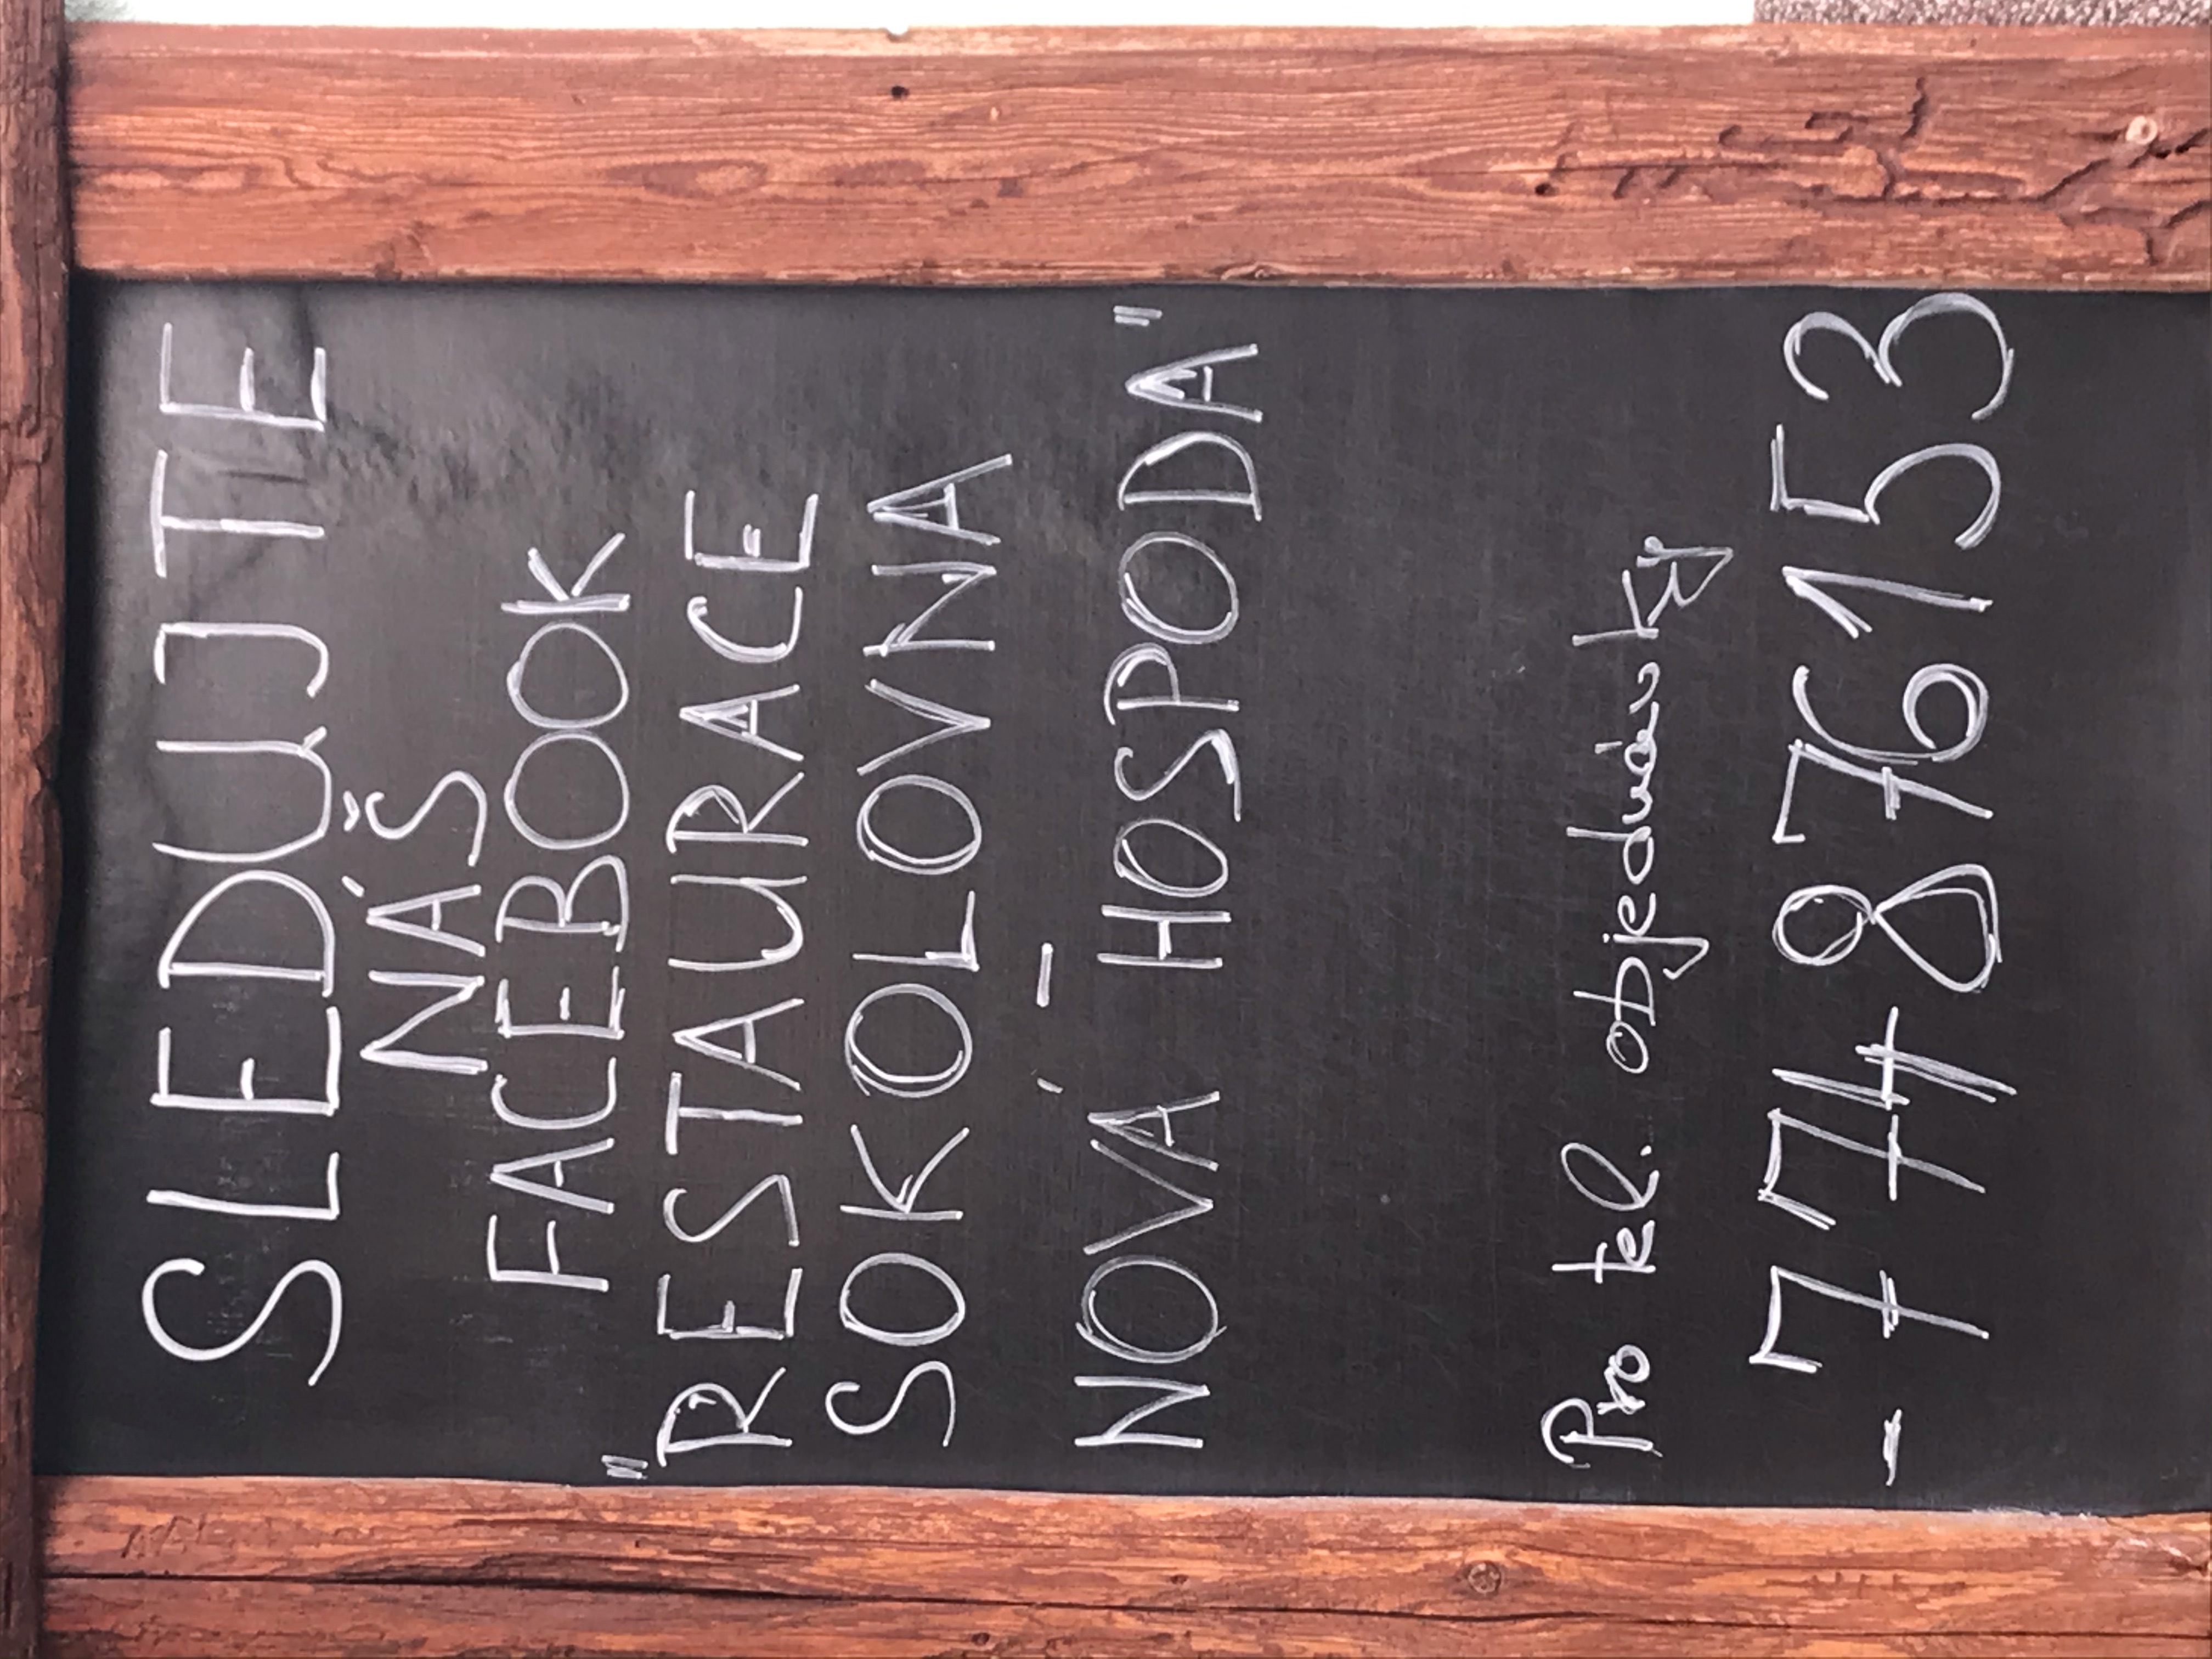 SLEDUJTE
NÁŠ
FACEBOOK
"RESTAURACE
SOKOLOVNA
-
NOVÁ HOSPODA"
Pro tel. objednávky
- 774 876153